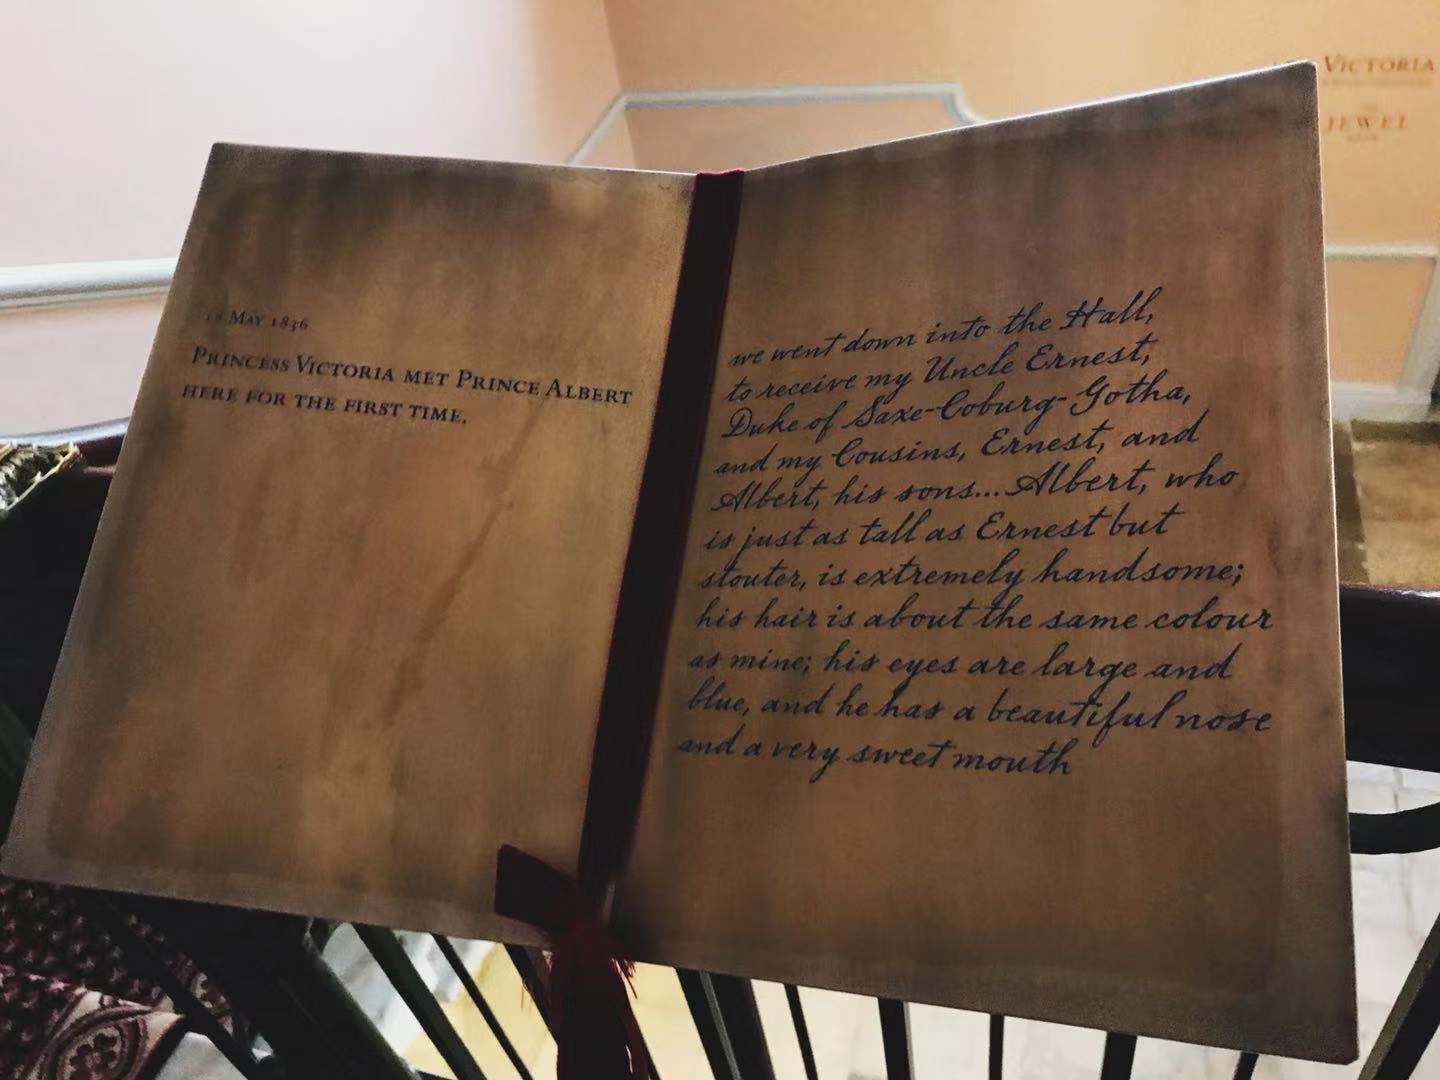 18 May 1836
Princess Victoria met Prince Albert
here for the first time.
we went down into the Hall,
to receive my Uncle Ernest,
Duke of Saxe-Coburg-Gotha,
and my Cousins, Ernest, and
Albert, his sons... Albert, who
is just as tall as Ernest but
stouter, is extremely handsome;
his hair is about the same colour
as mine; his eyes are large and
blue, and he has a beautiful nose
and a very sweet mouth
Victoria
Jewel